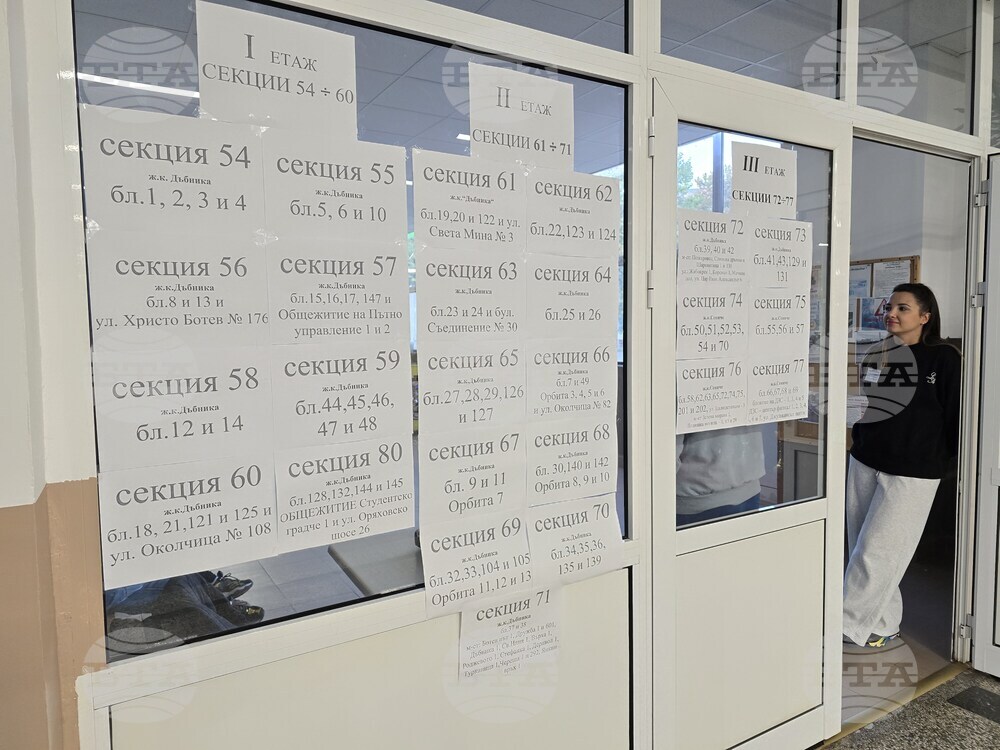 I ЕТАЖ
СЕКЦИИ 54 ÷ 60
секция 54
ж.к. Дъбника
бл.1, 2, 3 и 4
секция 55
ж.к.Дъбника
бл.5, 6 и 10
секция 56
ж.к.Дъбника
бл.8 и 13 и
ул. Христо Ботев № 176
секция 57
ж.к.Дъбника
бл.15,16,17, 147 и
Общежитие на Пътно
управление 1 и 2
секция 58
ж.к.Дъбника
бл.12 и 14
секция 59
ж.к.Дъбника
бл.44,45,46,
47 и 48
секция 60
ж.к.Дъбника
бл.18, 21,121 и 125 и
ул. Околчица № 108
секция 80
ж.к.Дъбника
бл.128,132,144 и 145
ОБЩЕЖИТИЕ Студентско
градче 1 и ул. Оряховско
шосе 26
II ЕТАЖ
СЕКЦИИ 61 ÷ 71
секция 61
ж.к."Дъбника"
бл.19,20 и 122 и ул.
Света Мина № 3
секция 62
ж.к.Дъбника
бл.22,123 и 124
секция 63
ж.к.Дъбника
бл.23 и 24 и бул.
Съединение № 30
секция 64
ж.к.Дъбника
бл.25 и 26
секция 65
ж.к.Дъбника
бл.27,28,29,126
и 127
секция 66
ж.к.Дъбника
бл.7 и 49
Орбита 3, 4, 5 и 6
и ул. Околчица № 82
секция 67
ж.к.Дъбника
бл. 9 и 11
Орбита 7
секция 68
ж.к.Дъбника
бл. 30,140 и 142
Орбита 8, 9 и 10
секция 69
ж.к.Дъбника
бл.32,33,104 и 105
Орбита 11,12 и 13
секция 70
ж.к.Дъбника
бл.34,35,36,
135 и 139
секция 71
ж.к.Дъбника
III ЕТАЖ
СЕКЦИИ 72÷77
секция 72
ж.к.Дъбника
бл.39, 40 и 42
секция 73
ж.к.Дъбника
бл.41,43,129 и
131
секция 74
бл.50,51,52,53,
54 и 70
секция 75
бл.55,56 и 57
секция 76
бл.58,62,63,65,72,74,75,
секция 77
бл.66,67,68 и 69
БТА
БТА
БТА